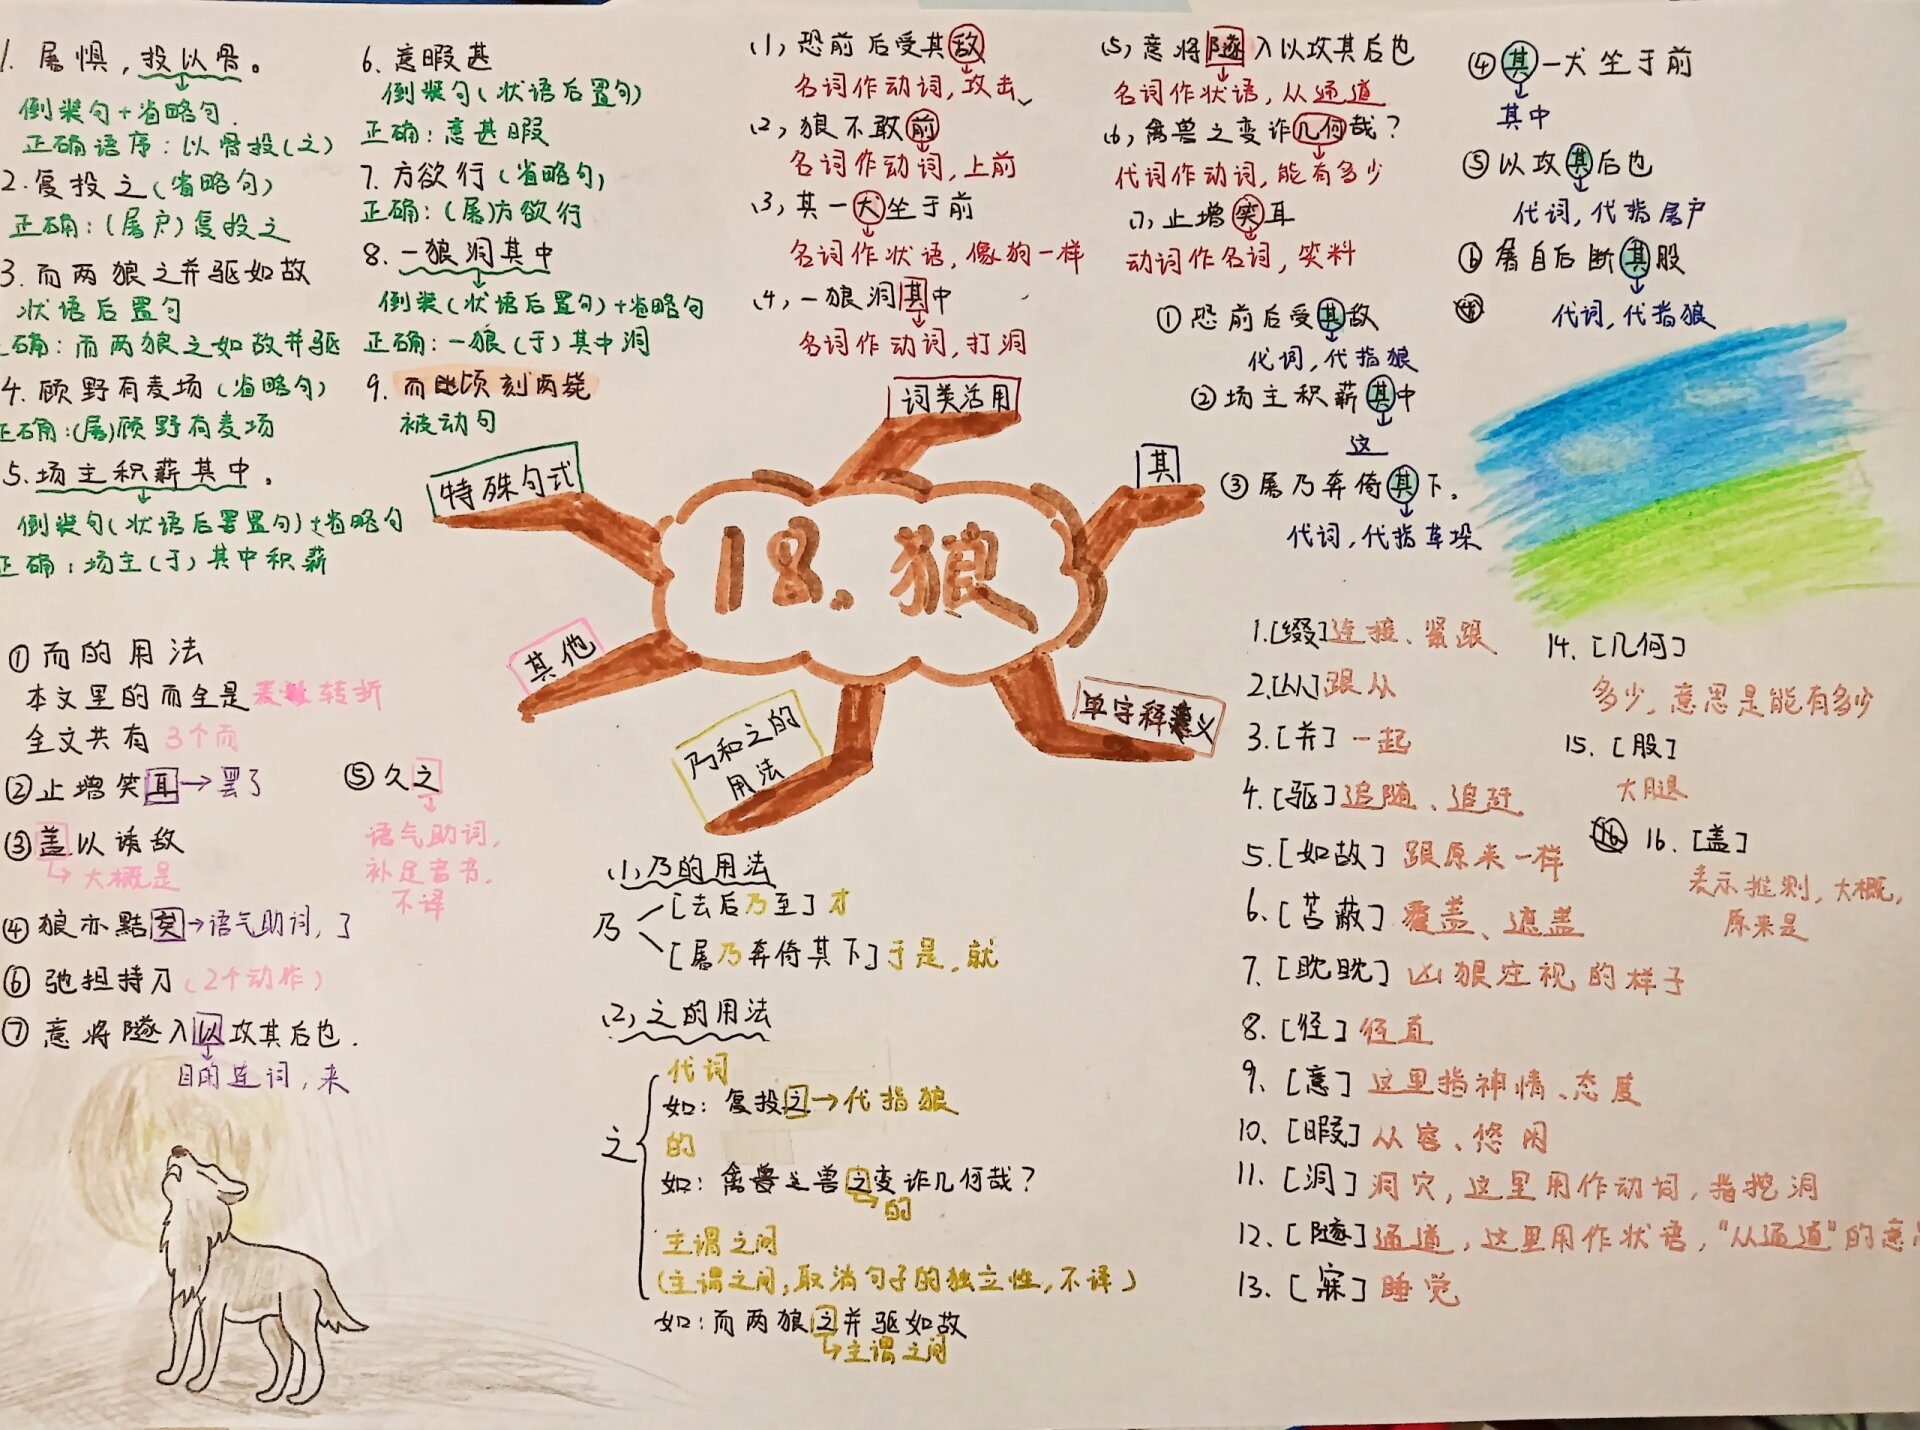 18.狼
特殊句式
1. 屠惧，投以骨。
倒装句+省略句.
正确语序：以骨投(之)
2.复投之(省略句)
正确：(屠户)复投之
3.而两狼之并驱如故
状语后置句
正确：而两狼之如故并驱
4.顾野有麦场(省略句)
正确:(屠)顾野有麦场
5.场主积薪其中。
倒装句(状语后置句)+省略句
正确：场主(于)其中积薪
6.意暇甚
倒装句(状语后置句)
正确：意甚暇
7.方欲行(省略句)
正确：(屠)方欲行
8.一狼洞其中
倒装(状语后置句)+省略句
正确：一狼(于)其中洞
9.而顷刻两毙
被动句
词类活用
(1)恐前后受其敌
名词作动词,攻击
(2)狼不敢前
名词作动词,上前
(3)其一犬坐于前
名词作状语,像狗一样
(4)一狼洞其中
名词作动词,打洞
(5)意将隧入以攻其后也
名词作状语,从通道
(6)禽兽之变诈几何哉?
代词作动词,能有多少
(7)止增笑耳
动词作名词,笑料
其
①恐前后受其敌
代词,代指狼
②场主积薪其中
这
③屠乃奔倚其下.
代词,代指草垛
④其一犬坐于前
其中
⑤以攻其后也
代词,代指屠户
⑥屠自后断其股
代词,代指狼
其他
①而的用法
本文里的而全是表转折
全文共有3个而
②止增笑耳→罢了
③盖以诱敌
大概是
④狼亦黠矣→语气助词,了
⑤久之
语气助词,
补足音节,
不译
⑥弛担持刀(2个动作)
⑦意将隧入以攻其后也.
目的连词,来
乃和之的
用法
(1)乃的用法
乃
[去后乃至]才
[屠乃奔倚其下]于是,就
(2)之的用法
之
代词
如：复投之→代指狼
的
如：禽兽之兽之变诈几何哉?
的
主谓之间
(主谓之间,取消句子的独立性,不译)
如:而两狼之并驱如故
主谓之间
单字释义
1.[缀]连接、紧跟
2.[从]跟从
3.[并]一起
4.[驱]追随、追赶
5.[如故]跟原来一样
6.[苫蔽]覆盖、遮盖
7.[眈眈]凶狠注视的样子
8.[径]径直
9.[意]这里指神情、态度
10.[暇]从容、悠闲
11.[洞]洞穴,这里用作动词,指挖洞
12.[隧]通道,这里用作状语,"从通道"的意
13.[寐]睡觉
14.[几何]
多少,意思是能有多少
15.[股]
大腿
16.[盖]
表示推测,大概,
原来是